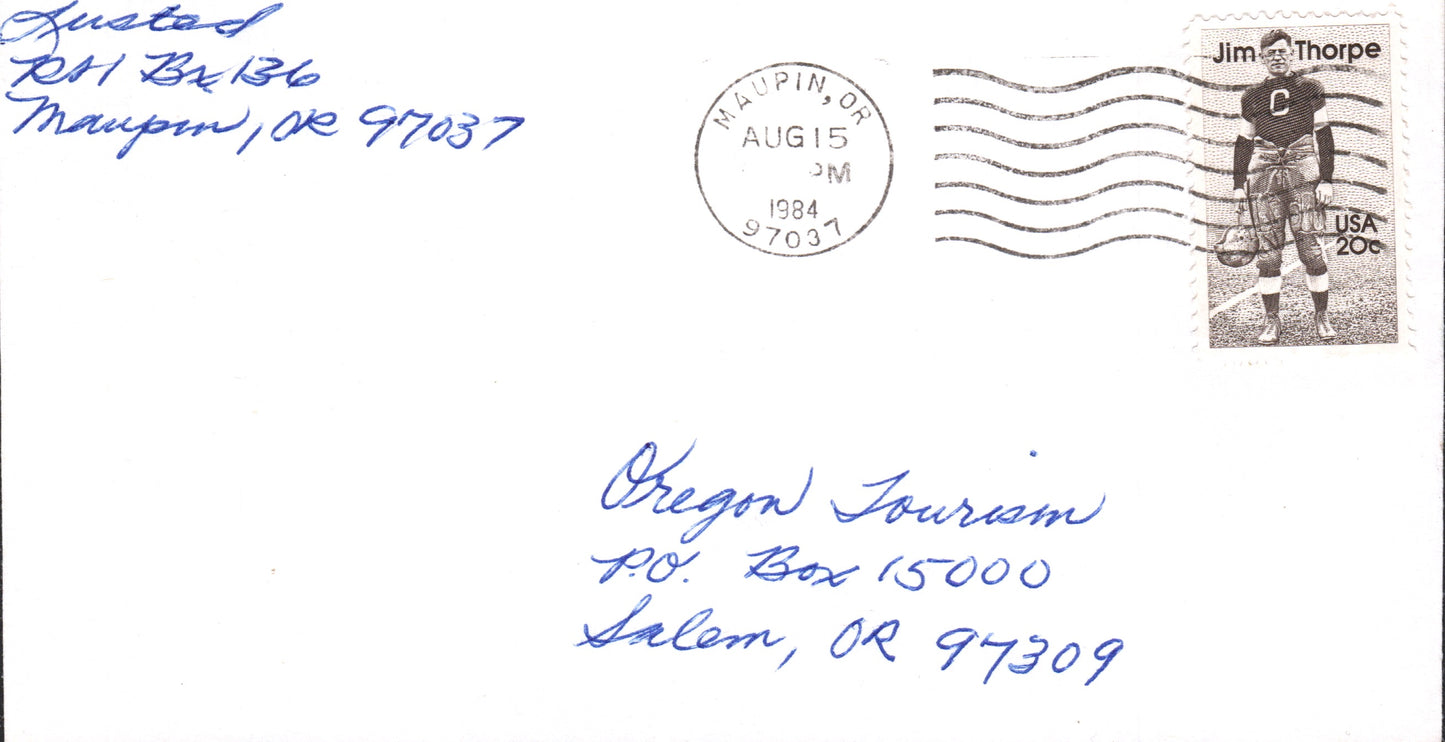 Lusted
Rt 1 Bx 136
Maupin, OR 97037
MAUPIN, OR
AUG 15
PM
1984
97037
Jim Thorpe
C
USA
20c
Oregon Tourism
P.O. Box 15000
Salem, OR 97309